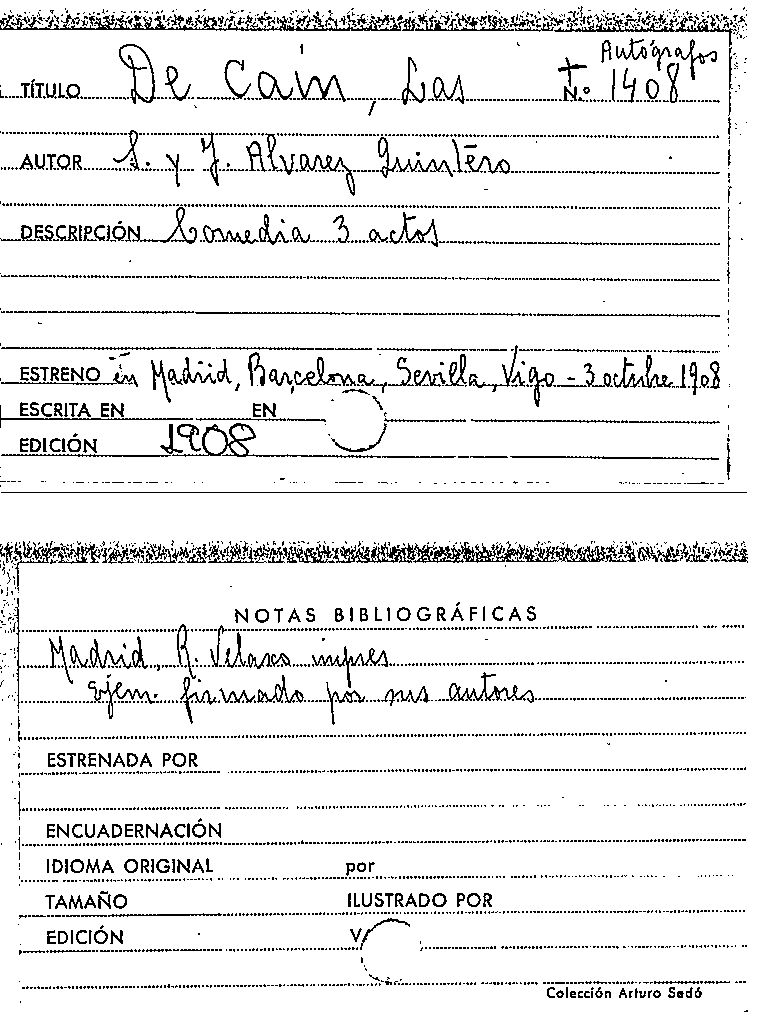 Autógrafos
TÍTULO De Caín, Las N.º 1408
AUTOR S. y J. Alvarez Quintero
DESCRIPCIÓN Comedia 3 actos
ESTRENO en Madrid, Barcelona, Sevilla, Vigo - 3 octubre 1908
ESCRITA EN EN
EDICIÓN 1908
NOTAS BIBLIOGRÁFICAS
Madrid, R. Velasco impres
Ejem. firmado por sus autores
ESTRENADA POR
ENCUADERNACIÓN
IDIOMA ORIGINAL por
TAMAÑO ILUSTRADO POR
EDICIÓN
Colección Arturo Sedó